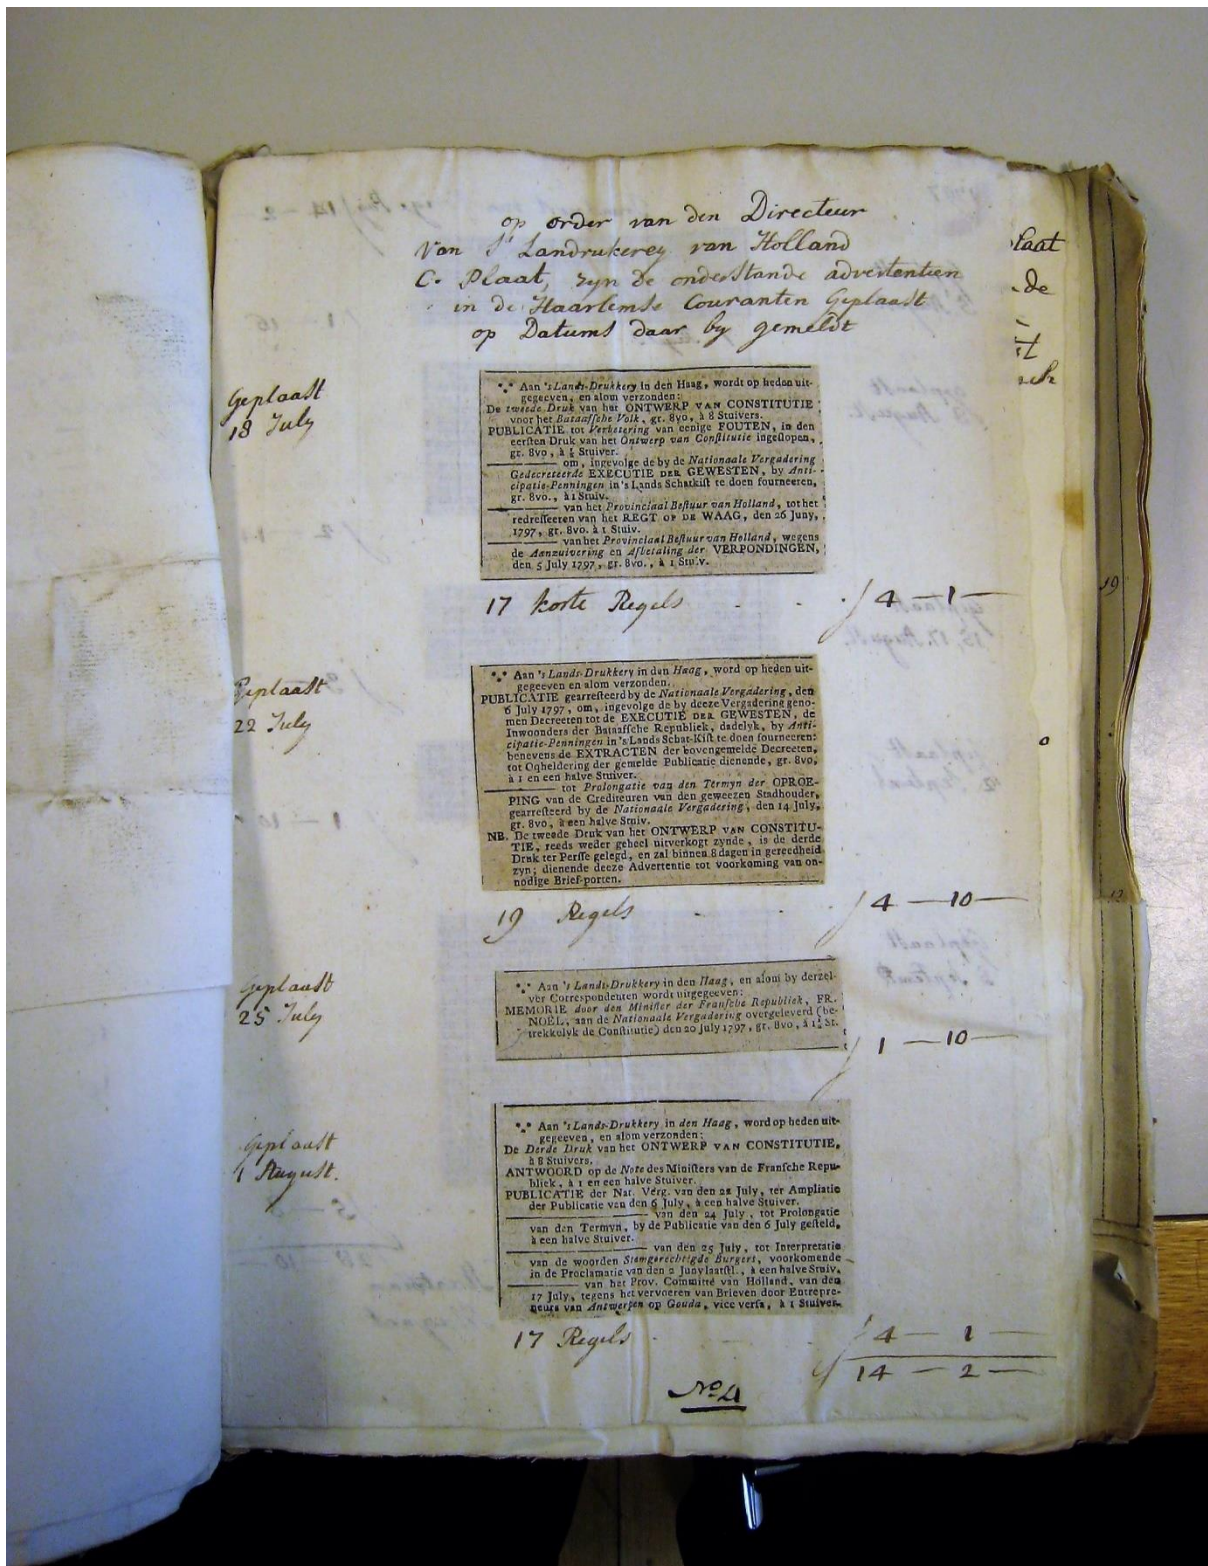 op order van den Directeur
Van S' Landrukerey van Holland
C. Plaat, zyn de onderstande advertentien
in de Haarlemse Couranten Geplaast
op Datums daar by gemeldt
Geplaast
18 July
*** Aan 's Lands-Drukkery in den Haag, wordt op heden uit-
gegeeven, en alom verzonden:
De tweede Druk van het ONTWERP VAN CONSTITUTIE
voor het Bataafsche Volk, gr. 8vo, à 8 Stuivers.
PUBLICATIE tot Verbetering van eenige FOUTEN, in den
eersten Druk van het Ontwerp van Constitutie ingeslopen,
gr. 8vo, à ½ Stuiver.
——— om, ingevolge de by de Nationaale Vergadering
Gedecreteerde EXECUTIE DER GEWESTEN, by Anti-
cipatie-Penningen in 's Lands Schatkist te doen fourneeren,
gr. 8vo., à 1 Stuiv.
——— van het Provinciaal Bestuur van Holland, tot het
redresseeren van het REGT OP DE WAAG, den 26 Juny,
1797, gr. 8vo. à 1 Stuiv.
——— van het Provinciaal Bestuur van Holland, wegens
de Aanzuivering en Afbetaling der VERPONDINGEN,
den 5 July 1797, gr. 8vo., à 1 Stuiv.
17 korte Regels - - ƒ 4 — 1 —
Geplaast
22 July
*** Aan 's Lands-Drukkery in den Haag, word op heden uit-
gegeeven en alom verzonden.
PUBLICATIE gearresteerd by de Nationaale Vergadering, den
6 July 1797, om, ingevolge de by deeze Vergadering geno-
men Decreeten tot de EXECUTIE DER GEWESTEN, de
Inwoonders der Bataafsche Republiek, dadelyk, by Anti-
cipatie-Penningen in 's Lands Schat-Kist te doen fourneeren:
benevens de EXTRACTEN der bovengemelde Decreeten,
tot Opheldering der gemelde Publicatie dienende, gr. 8vo,
à 1 en een halve Stuiver.
——— tot Prolongatie van den Termyn der OPROE-
PING van de Crediteuren van den geweezen Stadhouder,
gearresteerd by de Nationaale Vergadering, den 14 July,
gr. 8vo, à een halve Stuiv.
NB. De tweede Druk van het ONTWERP VAN CONSTITU-
TIE, reeds weder geheel uitverkogt zynde, is de derde
Druk ter Persse gelegd, en zal binnen 8 dagen in gereedheid
zyn; dienende deeze Advertentie tot voorkoming van on-
nodige Brief-porten.
19 Regels - - ƒ 4 — 10 —
Geplaast
25 July
*** Aan 's Lands-Drukkery in den Haag, en alom by derzel-
ver Correspondenten wordt uitgegeeven:
MEMORIE door den Minister der Fransche Republiek, FR.
NOËL, aan de Nationaale Vergadering overgeleverd (be-
trekkelyk de Constitutie) den 20 July 1797, gr. 8vo, à 1½ St.
ƒ 1 — 10 —
Geplaast
1 August.
*** Aan 's Lands-Drukkery in den Haag, word op heden uit-
gegeeven, en alom verzonden:
De Derde Druk van het ONTWERP VAN CONSTITUTIE,
à 8 Stuivers.
ANTWOORD op de Note des Ministers van de Fransche Repu-
bliek, à 1 en een halve Stuiver.
PUBLICATIE der Nat. Verg. van den 22 July, ter Ampliatie
der Publicatie van den 6 July, à een halve Stuiver.
——— van den 24 July, tot Prolongatie
van den Termyn, by de Publicatie van den 6 July gesteld,
à een halve Stuiver.
——— van den 25 July, tot Interpretatie
van de woorden Stemgerechtigde Burgers, voorkomende
in de Proclamatie van den 2 Juny laatstl., à een halve Stuiv.
——— van het Prov. Committé van Holland, van den
17 July, tegens het vervoeren van Brieven door Entrepre-
neurs van Antwerpen op Gouda, vice versa, à 1 Stuiver.
17 Regels - - ƒ 4 — 1 —
ƒ 14 — 2 —
No 4
laat
de
19